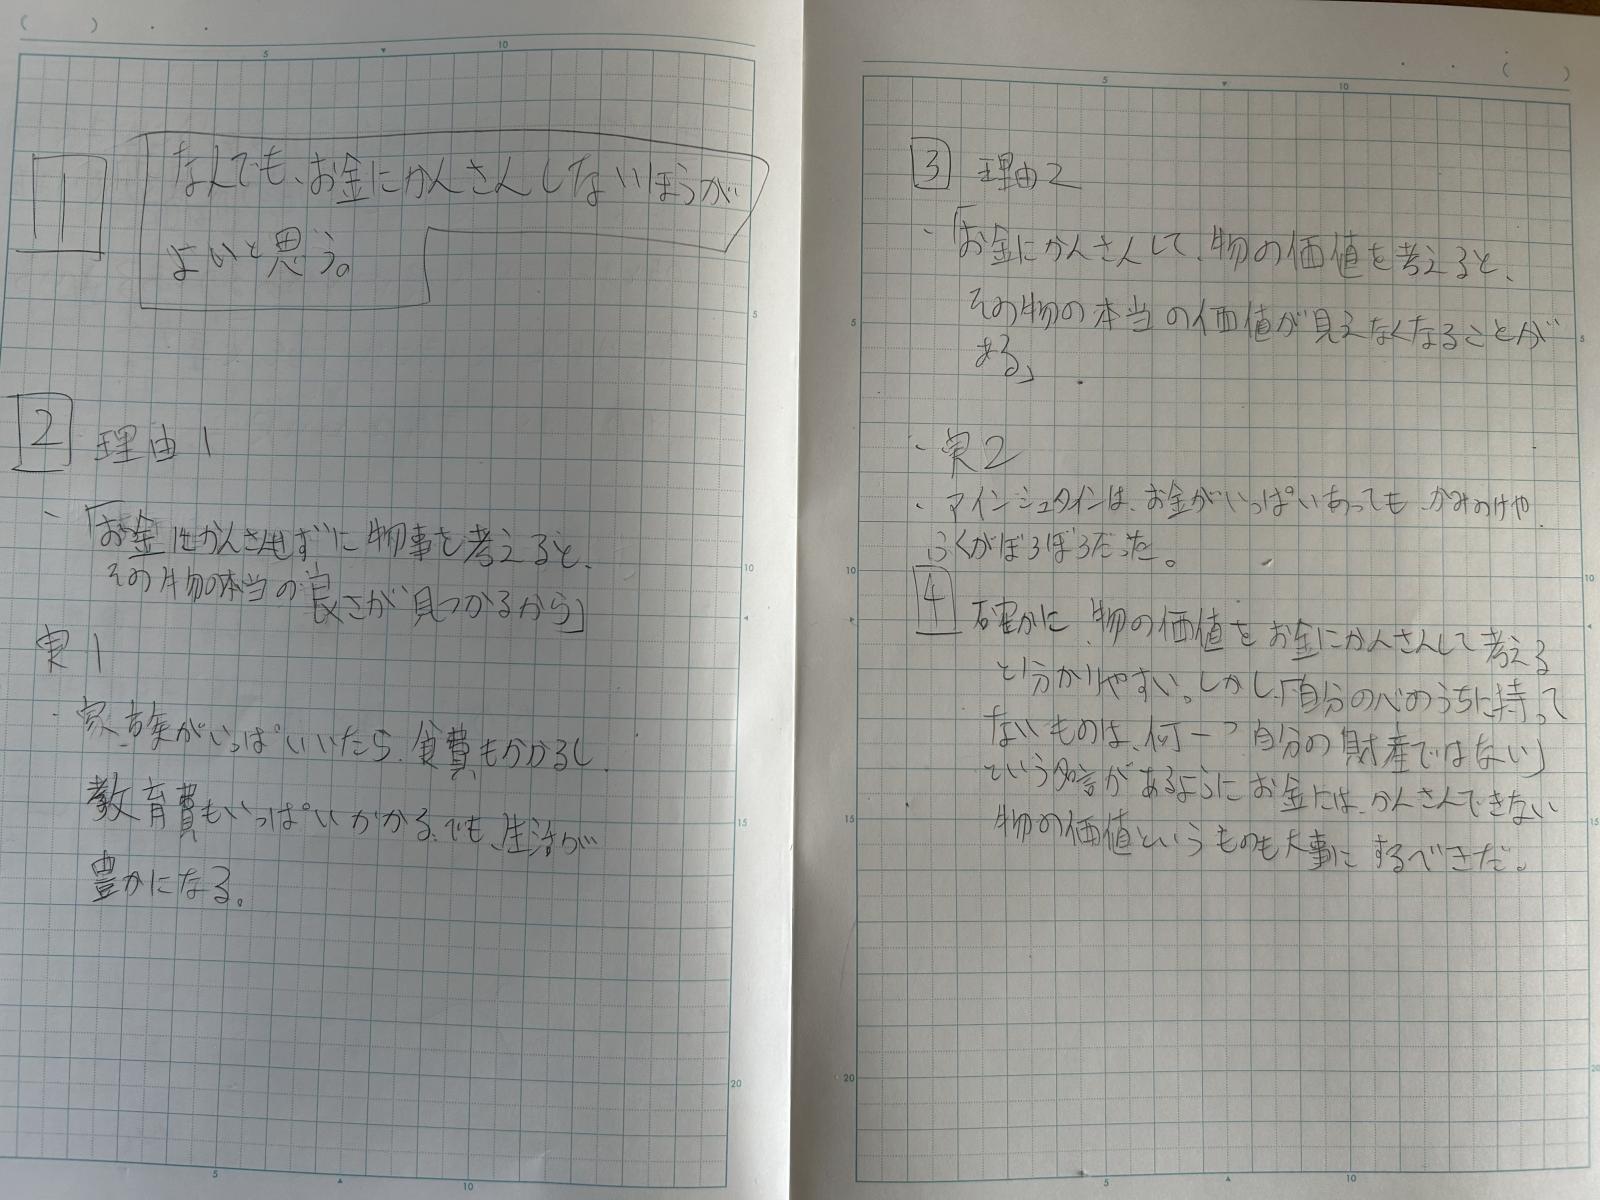 ( ) . .
5 10
1
なんでも、お金にかんさんしないほうが
よいと思う。
5
2 理由1
・「お金にかんさんせずに物事を考えると、
10
その物の本当の良さが見つかるから」
実1
・家族がいっぱいいたら、食費もかかるし
15
教育費もいっぱいかかる、でも、生活が
豊かになる。
20
5 10
. . ( )
5 10
3 理由2
・「お金にかんさんして、物の価値を考えると、
その物の本当の価値が見えなくなることが
5 5
ある」
・実2
・アインシュタインは、お金がいっぱいあっても、かみのけや、
ふくがぼろぼろだった。
10 10
4 確かに、物の価値をお金にかんさんして考える
と分かりやすい。しかし、「自分の心のうちに持って
ないものは、何一つ自分の財産ではない」
という名言があるようにお金には、かんさんできない
15 15
物の価値というものも大事にするべきだ。
20 20
5 10